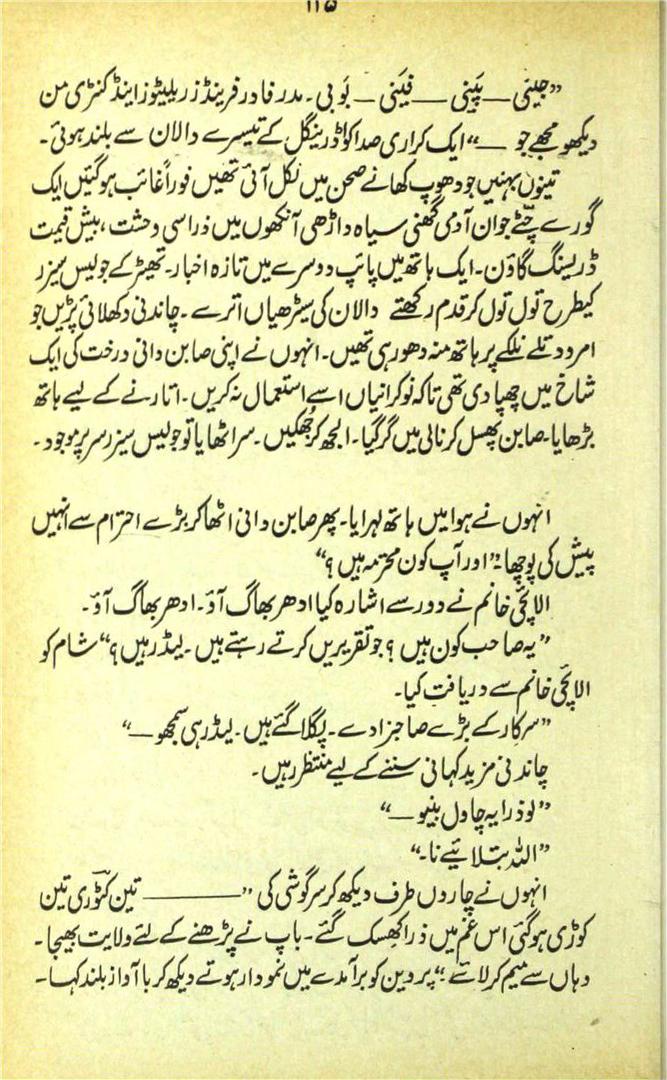 ۱۱۵
”جینی — پَینی — فَینی — بَوبی۔ مدر فادر فرینڈز ریلیٹوز اینڈ کنٹری من
دیکھو مجھے جو —“ ایک کراری صدا کواڈرینگل کے تیسرے دالان سے بلند ہوئی۔
تینوں بہنیں جو دھوپ کھانے صحن میں نکل آئی تھیں فوراً غائب ہوگئیں ایک
گورے چٹے جوان آدمی گھنی سیاہ داڑھی آنکھوں میں ذرا سی وحشت، بیش قیمت
ڈریسنگ گاؤن۔ ایک ہاتھ میں پائپ دوسرے میں تازہ اخبار۔ تھیٹر کے جولیس سیزر
کیطرح تول تول کر قدم رکھتے دالان کی سیڑھیاں اترے۔ چاندنی دکھلائی پڑیں جو
امرود تلے نلکے پر ہاتھ منہ دھو رہی تھیں۔ انہوں نے اپنی صابن دانی درخت کی ایک
شاخ میں چھپا دی تھی تاکہ نوکرانیاں اسے استعمال نہ کریں۔ اتارنے کے لیے ہاتھ
بڑھایا۔ صابن پھسل کر نالی میں گر گیا۔ الجھ کر جُھکیں۔ سر اٹھایا تو جولیس سیزر سر پر موجود۔
انہوں نے ہوا میں ہاتھ لہرایا۔ پھر صابن دانی اٹھا کر بڑے احترام سے انہیں
پیش کی پوچھا: ”اور آپ کون محترمہ ہیں؟“
الائچی خانم نے دور سے اشارہ کیا ادھر بھاگ آؤ۔ ادھر بھاگ آؤ۔
”یہ صاحب کون ہیں؟ جو تقریریں کرتے رہتے ہیں۔ لیڈر ہیں؟“ شام کو
الائچی خانم سے دریافت کیا۔
”سرکار کے بڑے صاحبزادے۔ پگلا گئے ہیں۔ لیڈر ہی سمجھو —“
چاندنی مزید کہانی سننے کے لیے منتظر رہیں۔
”لو ذرا یہ چاول بنیو —“
”اللہ بتلائیے نا۔“
انہوں نے چاروں طرف دیکھ کر سرگوشی کی ”——— تین کٹوری تین
کوڑی ہوگئی اس غم میں ذرا کھسک گئے۔ باپ نے پڑھنے کے لئے ولایت بھیجا۔
وہاں سے میم کر لائے“ پروین کو برآمدے میں نمودار ہوتے دیکھ کر با آواز بلند کہا۔